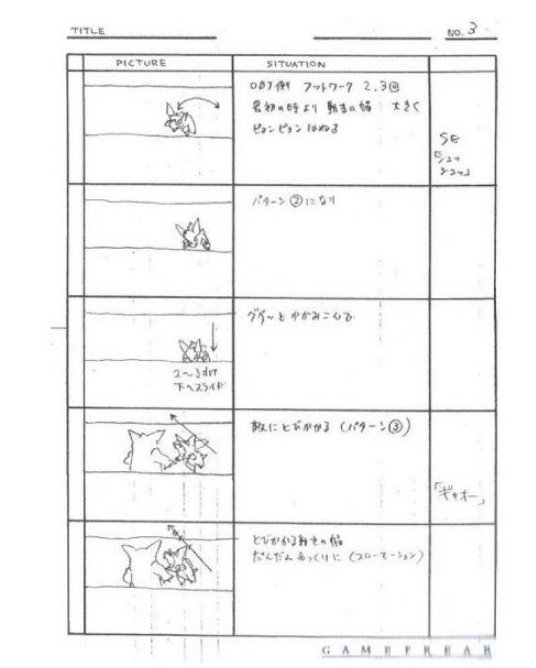 TITLE
NO. 3
PICTURE
SITUATION
OBJ側 フットワーク 2.3回
最初の時より 動きの幅 大きく
ピョンピョン はねる
SE
「シュッ
シュッ」
パターン②になり
グイーッとかがみこんで
2〜3ドット
下へスライド
敵にとびかかる (パターン③)
「ギャオー」
とびかかる動きの幅
だんだんゆっくりに (スローモーション)
GAMEFREAK